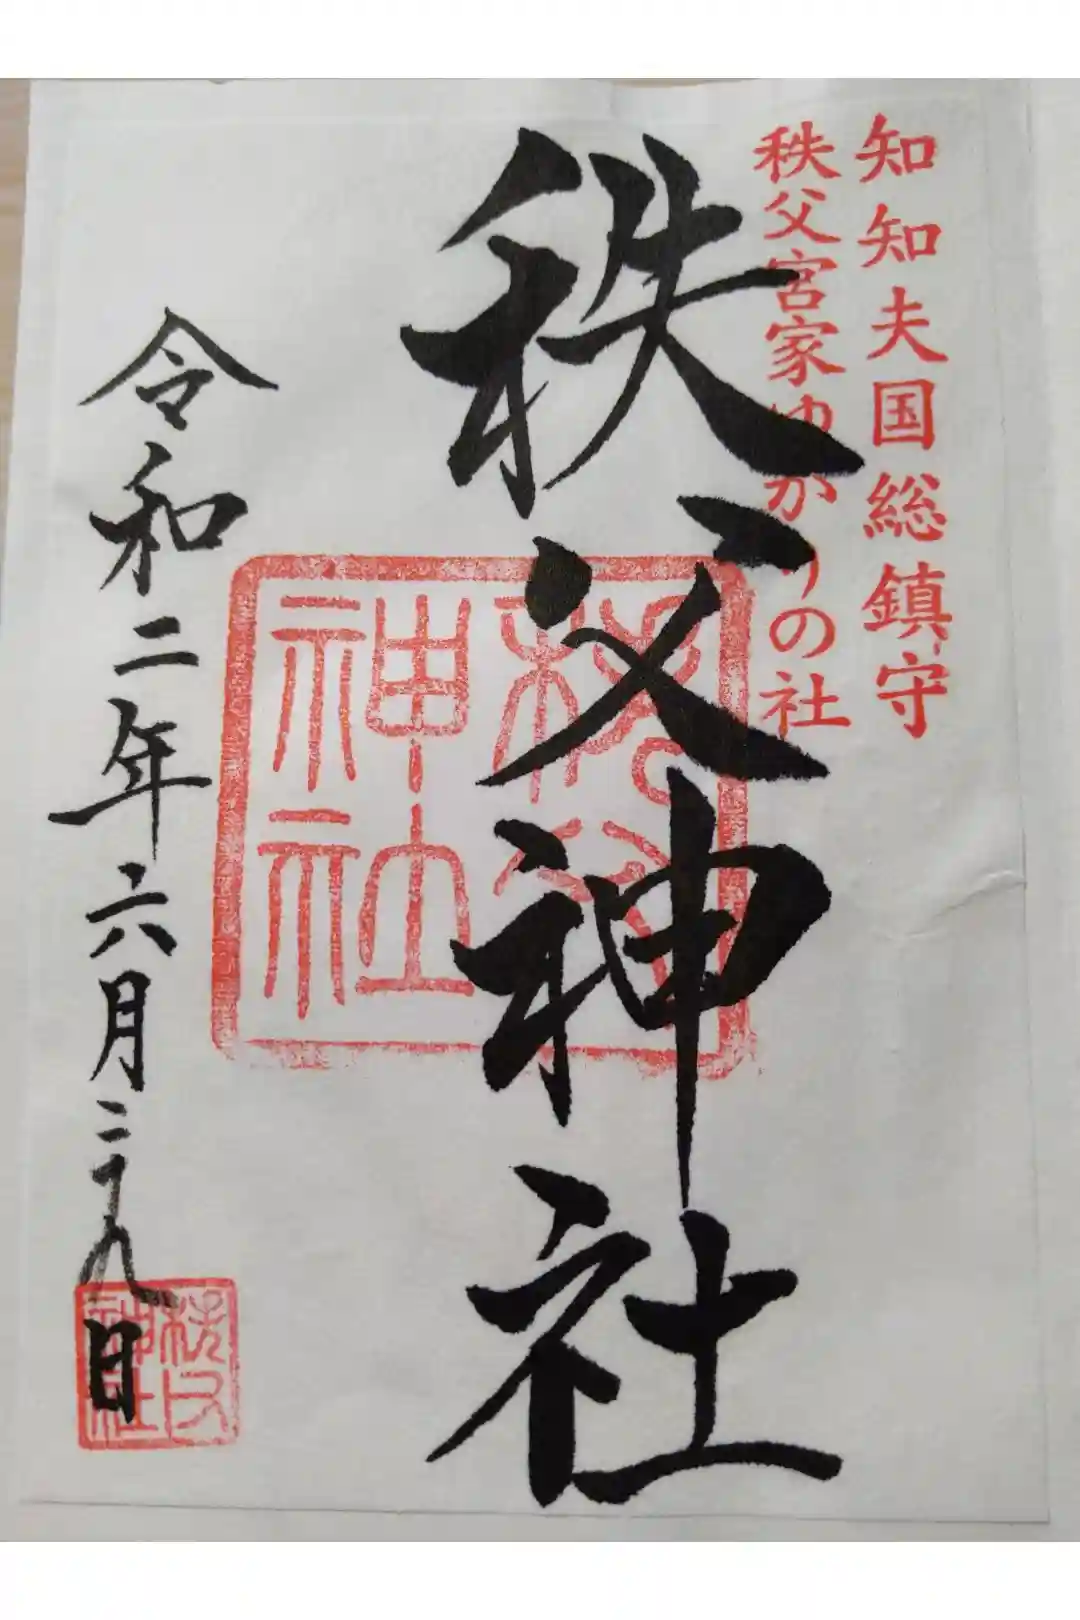 知知夫国総鎮守
秩父宮家ゆかりの社
秩父神社
秩父
神社
令和二年六月二十九日
秩父
神社